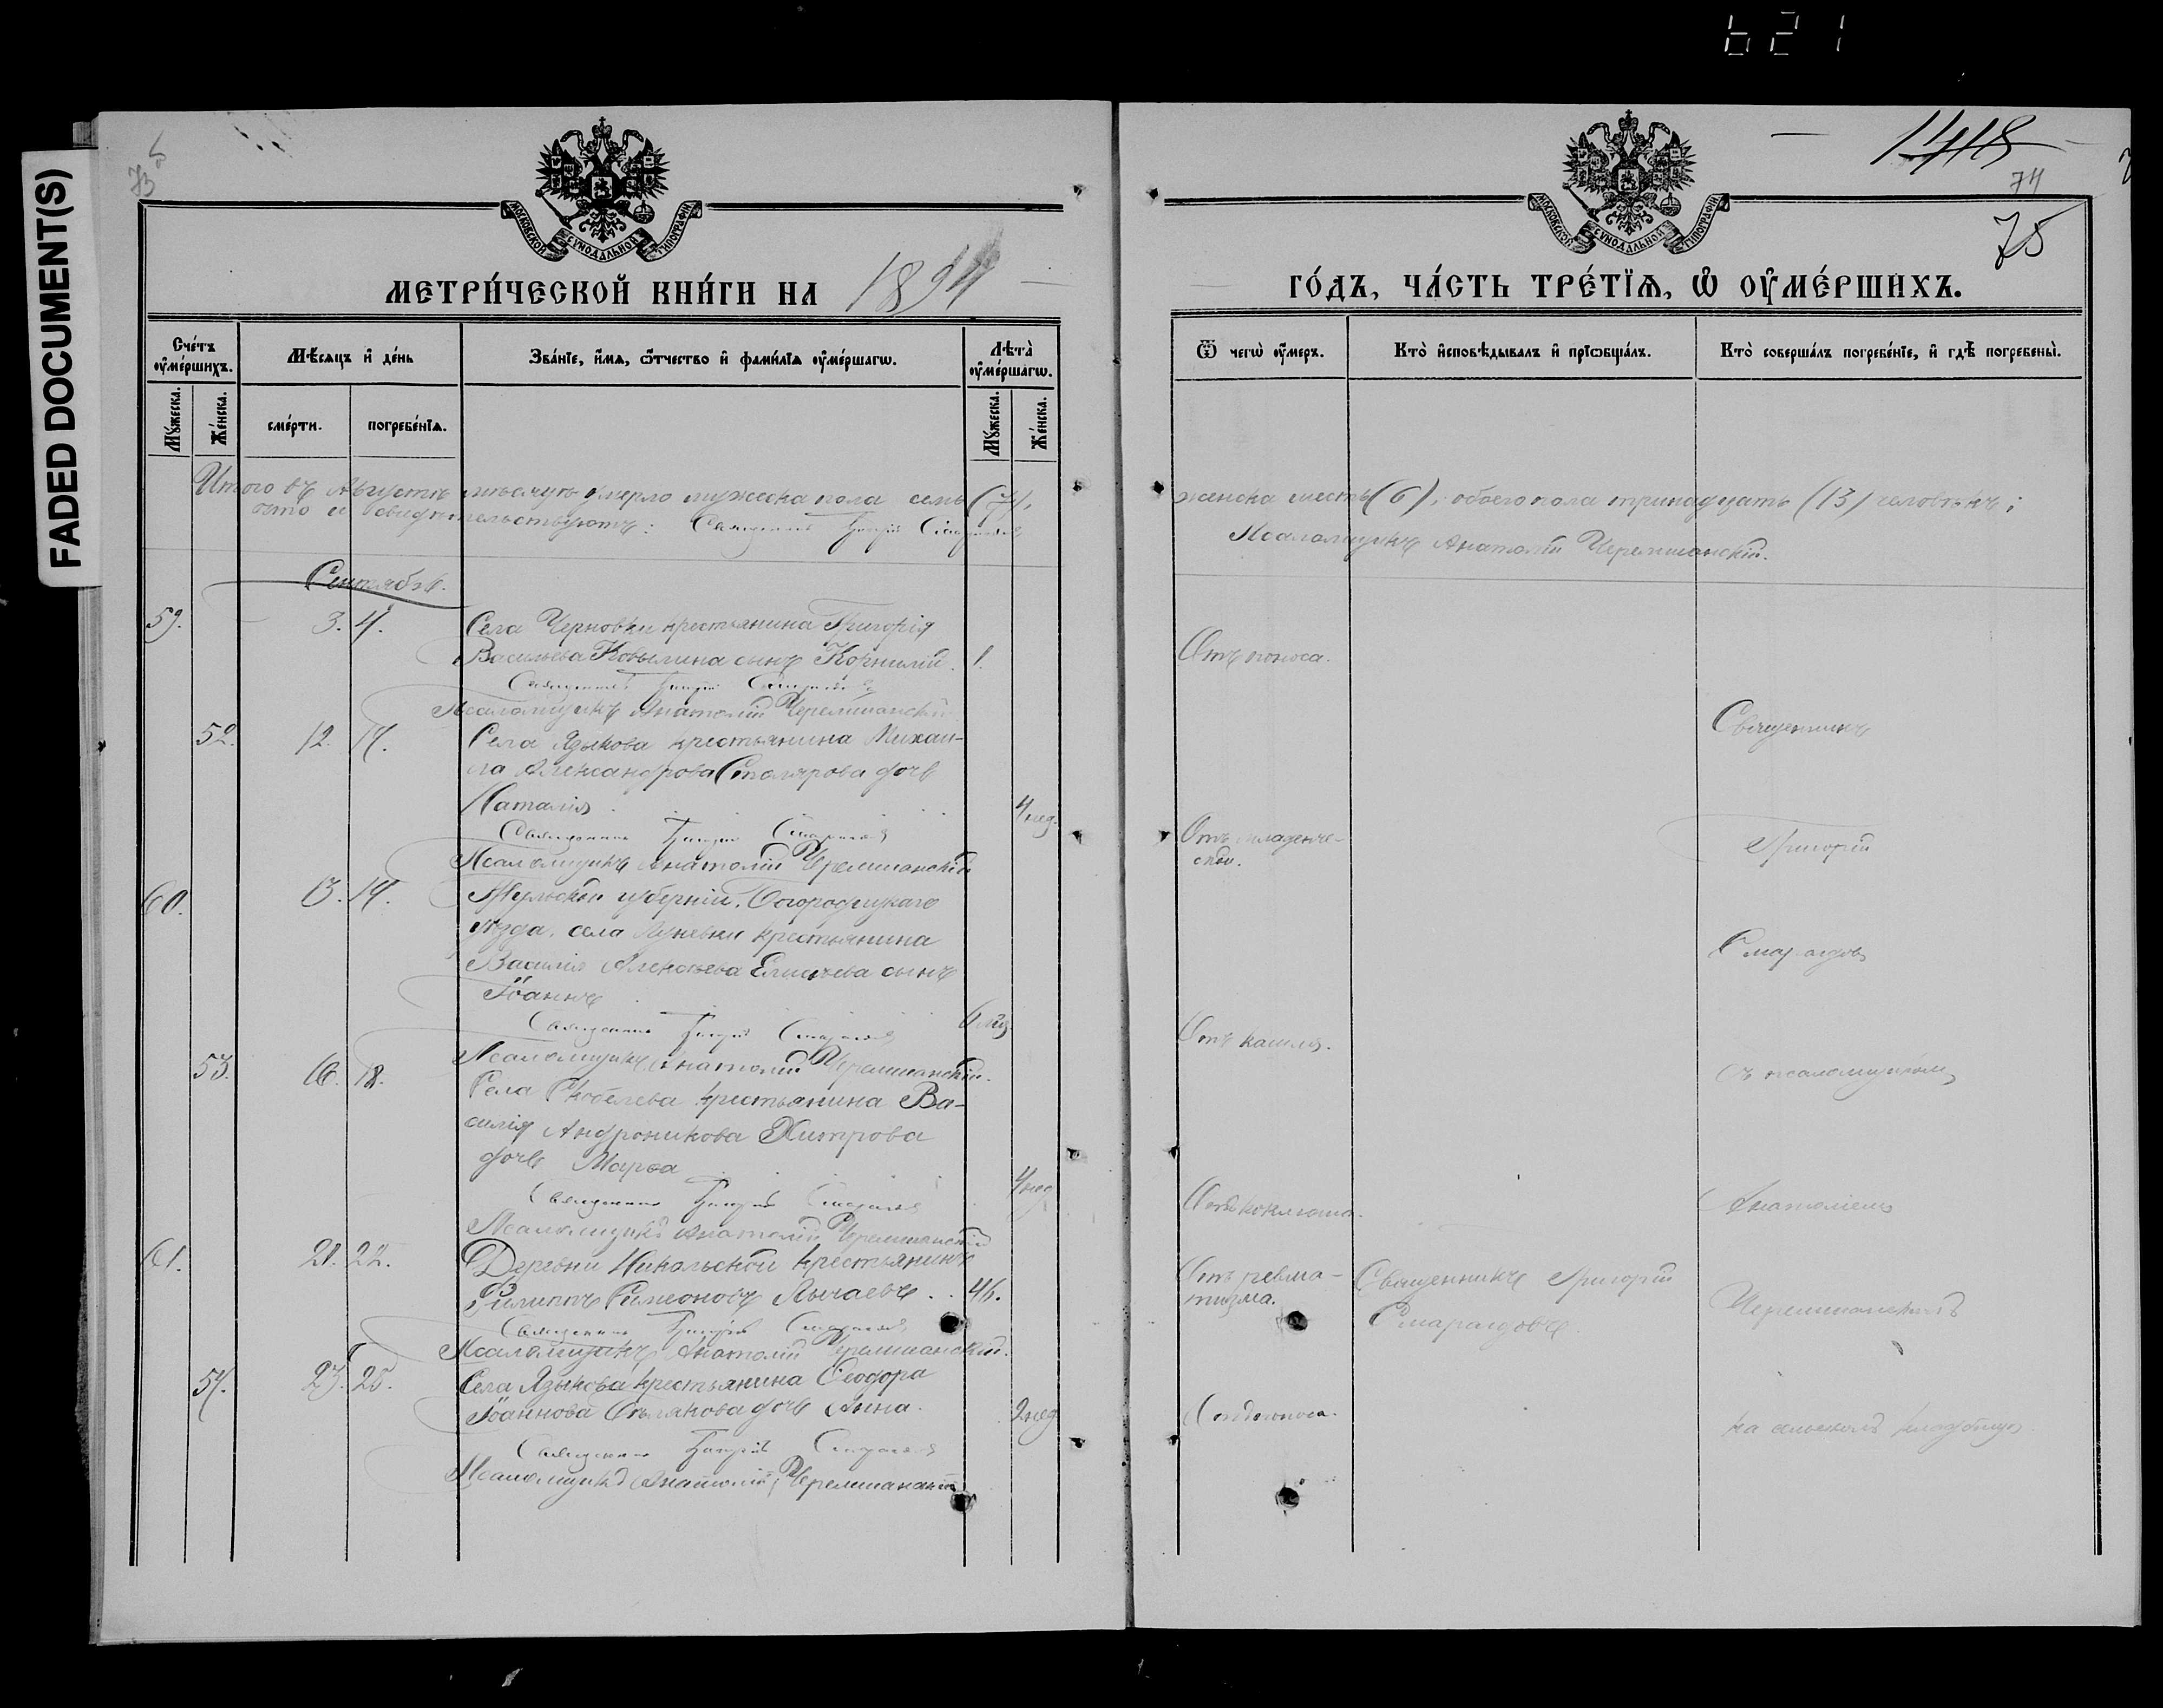 621
FADED DOCUMENT(S)
73
МОСКОВСКОЙ СѴНОДАЛЬНОЙ ТИПОГРАФІИ
МЕТРИ́ЧЕСКОЙ КНИ́ГИ НА 1894
Сче́тъ оу҆ме́ршихъ.
Мѣ́сяцъ и҆ де́нь
Зва́нїе, и҆́мѧ, ѻ҆́тчество и҆ фами́лїѧ оу҆ме́ршагѡ.
Лѣ́та оу҆ме́ршагѡ.
Мꙋ́жеска.
Же́нска.
сме́рти.
погребе́нїѧ.
Мꙋ́жеска.
Же́нска.
Итого въ Августѣ мѣсяцѣ умерло мужеска пола семь (7),
что и свидѣтельствуютъ: Священникъ Григорій Смарагдовъ
Сентябрь.
59. 3. 4. Села Черновки крестьянина Григорія
Васильева Ковылина сынъ Корнилій. 1.
Священникъ Григорій Смарагдовъ
Псаломщикъ Анатолій Черемшанскій
52. 12. 14. Села Языкова крестьянина Михаи-
ла Александрова Столярова дочь
Наталія 4 нед.
Священникъ Григорій Смарагдовъ
Псаломщикъ Анатолій Черемшанскій
60. 13. 14. Тульской губерніи, Богородицкаго
уѣзда, села крестьянина
Василія Алексѣева Елисѣева сынъ
Іоаннъ 6 мѣс
Священникъ Григорій Смарагдовъ
Псаломщикъ Анатолій Черемшанскій.
53. 16. 18. Села Скобелева крестьянина Ва-
силія Андроникова Хитрова
дочь Марѳа 4 нед
Священникъ Григорій Смарагдовъ
Псаломщикъ Анатолій Черемшанскій
61. 21. 22. Деревни Никольской крестьянинъ
Филиппъ Симеоновъ Лычаевъ 46.
Священникъ Григорій Смарагдовъ
Псаломщикъ Анатолій Черемшанскій.
54. 23. 25. Села Языкова крестьянина Ѳеодора
Іоаннова дочь Анна. 2 нед
Священникъ Григорій Смарагдовъ
Псаломщикъ Анатолій Черемшанскій
1418
74
75
МОСКОВСКОЙ СѴНОДАЛЬНОЙ ТИПОГРАФІИ
ГО́ДЪ, ЧА́СТЬ ТРЕ́ТЇѦ, Ѡ҆ ОУ҆МЕ́РШИХЪ.
Ѿ чегѡ̀ оу҆́меръ.
Кто̀ и҆сповѣ́дывалъ и҆ прїѡбща́лъ.
Кто̀ соверша́лъ погребе́нїе, и҆ гдѣ̀ погребены̀.
женска шесть (6), обоего пола тринадцать (13) человѣкъ;
Псаломщикъ Анатолій Черемшанскій.
Отъ поноса.
Священникъ
Отъ младенче-
ской.
Григорій
Смарагдовъ
Отъ кашля.
съ псаломщикомъ
Отъ коклюша.
Анатоліемъ
Отъ ревма-
тизма.
Священникъ Григорій
Смарагдовъ
Черемшанскимъ
Отъ поноса.
на сельскомъ кладбищѣ